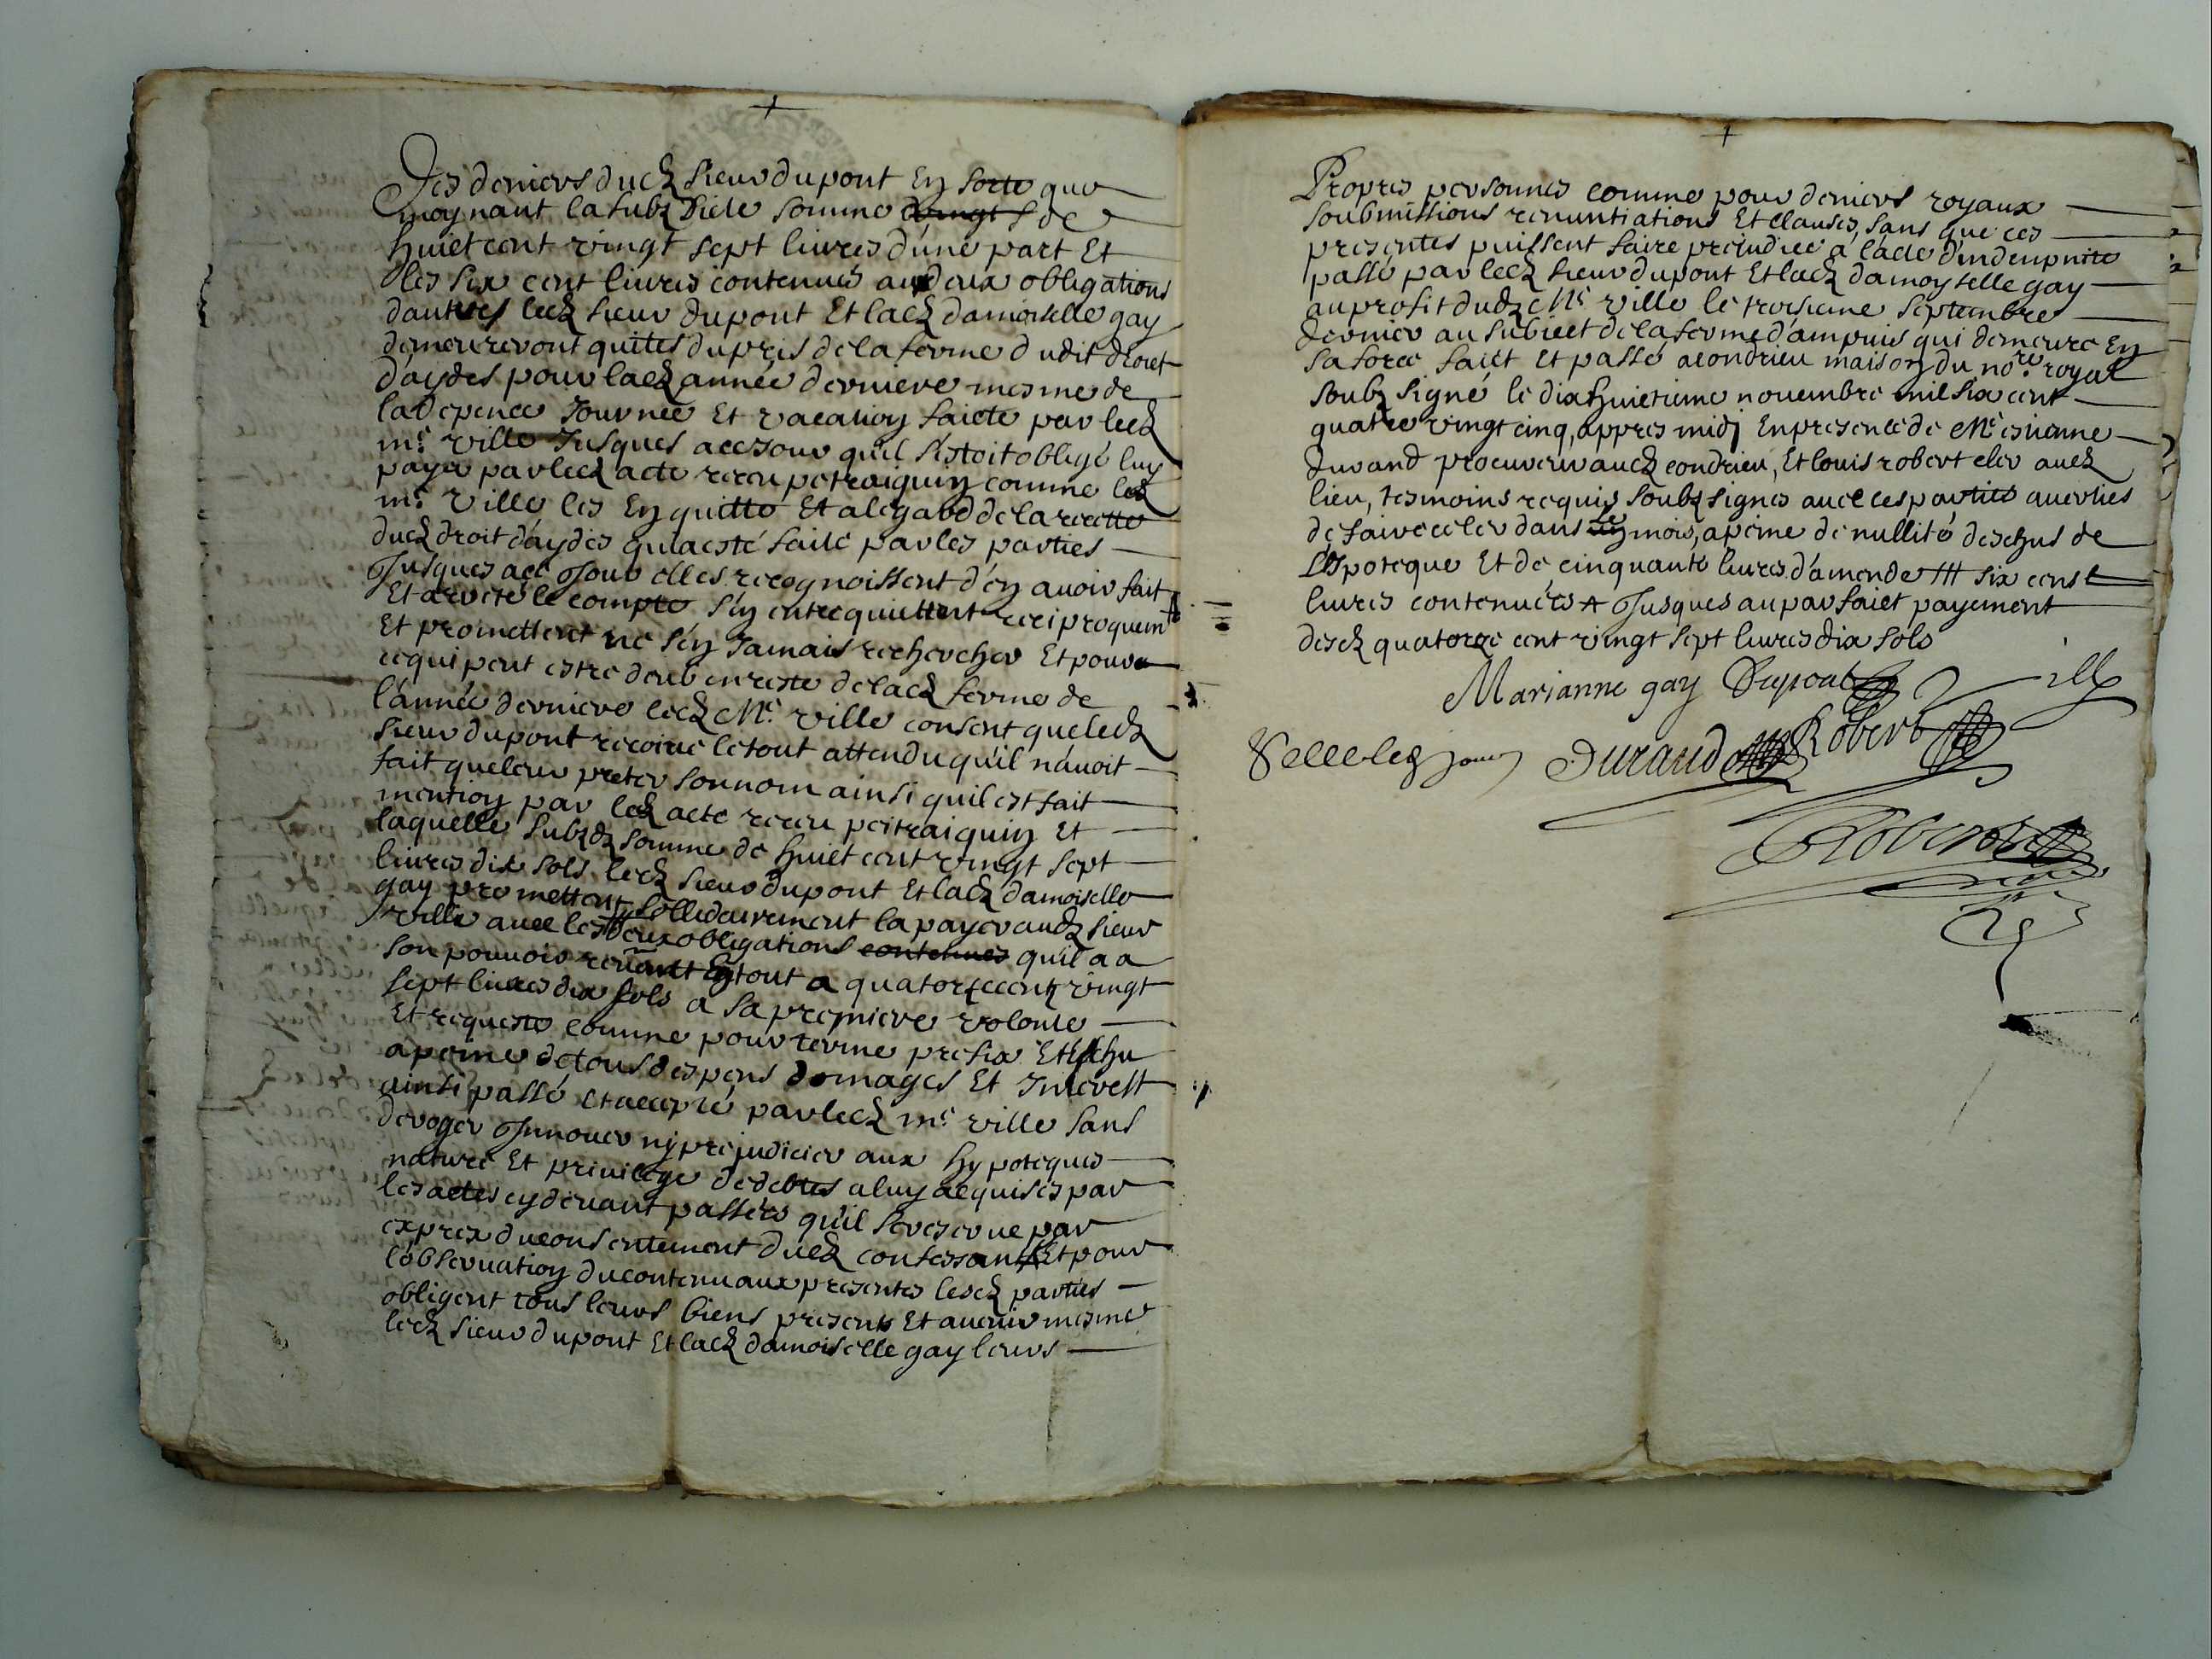 Des deniers dud sieur dupont En sorte que
moynant la subz dicte somme vingt s de
huict cent vingt sept livres d'une part Et
les six cent livres contenues aux deux obligations
dautres led sieur dupont Et lad damoiselle gay
demeureront quites du pris de la ferme dudit droict
d'aydes pour lad année derniere mesme de
la depence Journée Et vacation faicte par led
mr ville Jusques a ce jour quil s'estoit obligé luy
payer par led acte receu petraiguin comme led
mr ville les En quitte Et a legard de la recette
dud droit d'aydes qui a esté faite par les parties
Jusques a ce Jour elles recognoissent d'en avoir fait
Et arreté le compte s'en entrequittent reciproquemt
Et promettent ne s'en Jamais rechercher Et pour
ce qui peut estre deub en reste de lad ferme de
l'année derniere led Mr ville consent que led
sieur dupont recoive le tout attendu qu'il n'avoit
fait que leur preter son nom ainsi quil est fait
mention par led acte receu petraiguin Et
laquelle subzd somme de huict cent vingt sept
livres dix sols led sieur dupont Et lad damoiselle
gay promettent sollidairement la payer aud sieur
ville avec les deux obligations contenues quil a a
son pouvoir revenant En tout a quatorze cent vingt
sept livres dix sols a sa premiere volonté
Et requeste comme pour terme prefix Et Eschu
a peine de tous despens domages Et Interest
ainsi passé et accepté par led mr ville sans
deroger Innover ny prejudicier aux hypoteques
nature Et privilege de debtes a luy acquises par
les actes cy devant passées qu'il se reserve par
exprex du consentement dud confessant Et pour
l'observation du contenu aux presentes lesd parties
obligent tous leurs biens presents Et avenir mesme
led sieur dupont Et lad damoiselle gay leurs
Propres personnes comme pour deniers royaux
soubmissions renuntiations Et clauses, sans que ces
presentes puissent faire prejudice a l'acte d'indempnité
passé par led sieur dupont Et lad damoyselle gay
au profit dudz Mr ville le troisieme septembre
dernier au subiect de la ferme d'ampuis qui demeure En
sa force faict Et passé a condrieu maison du nore royal
soubz signé le dixhuictieme novembre mil six cent
quatre vingt cinq, appres midj En presence de Mr estienne
durand procureur aud condrieu, Et louis robert clerc aud
lieu, tesmoins requis soubz signes avec les parties averties
de faire celer dans le mois, a peine de nullité deschus de
l'ypoteque Et de cinquante livres d'amende ## six cens
livres contenues + Jusques au parfaict payement
desd quatorze cent vingt sept livres dix sols
Marianne gay Dupont Ville
Durand Robert
Robert